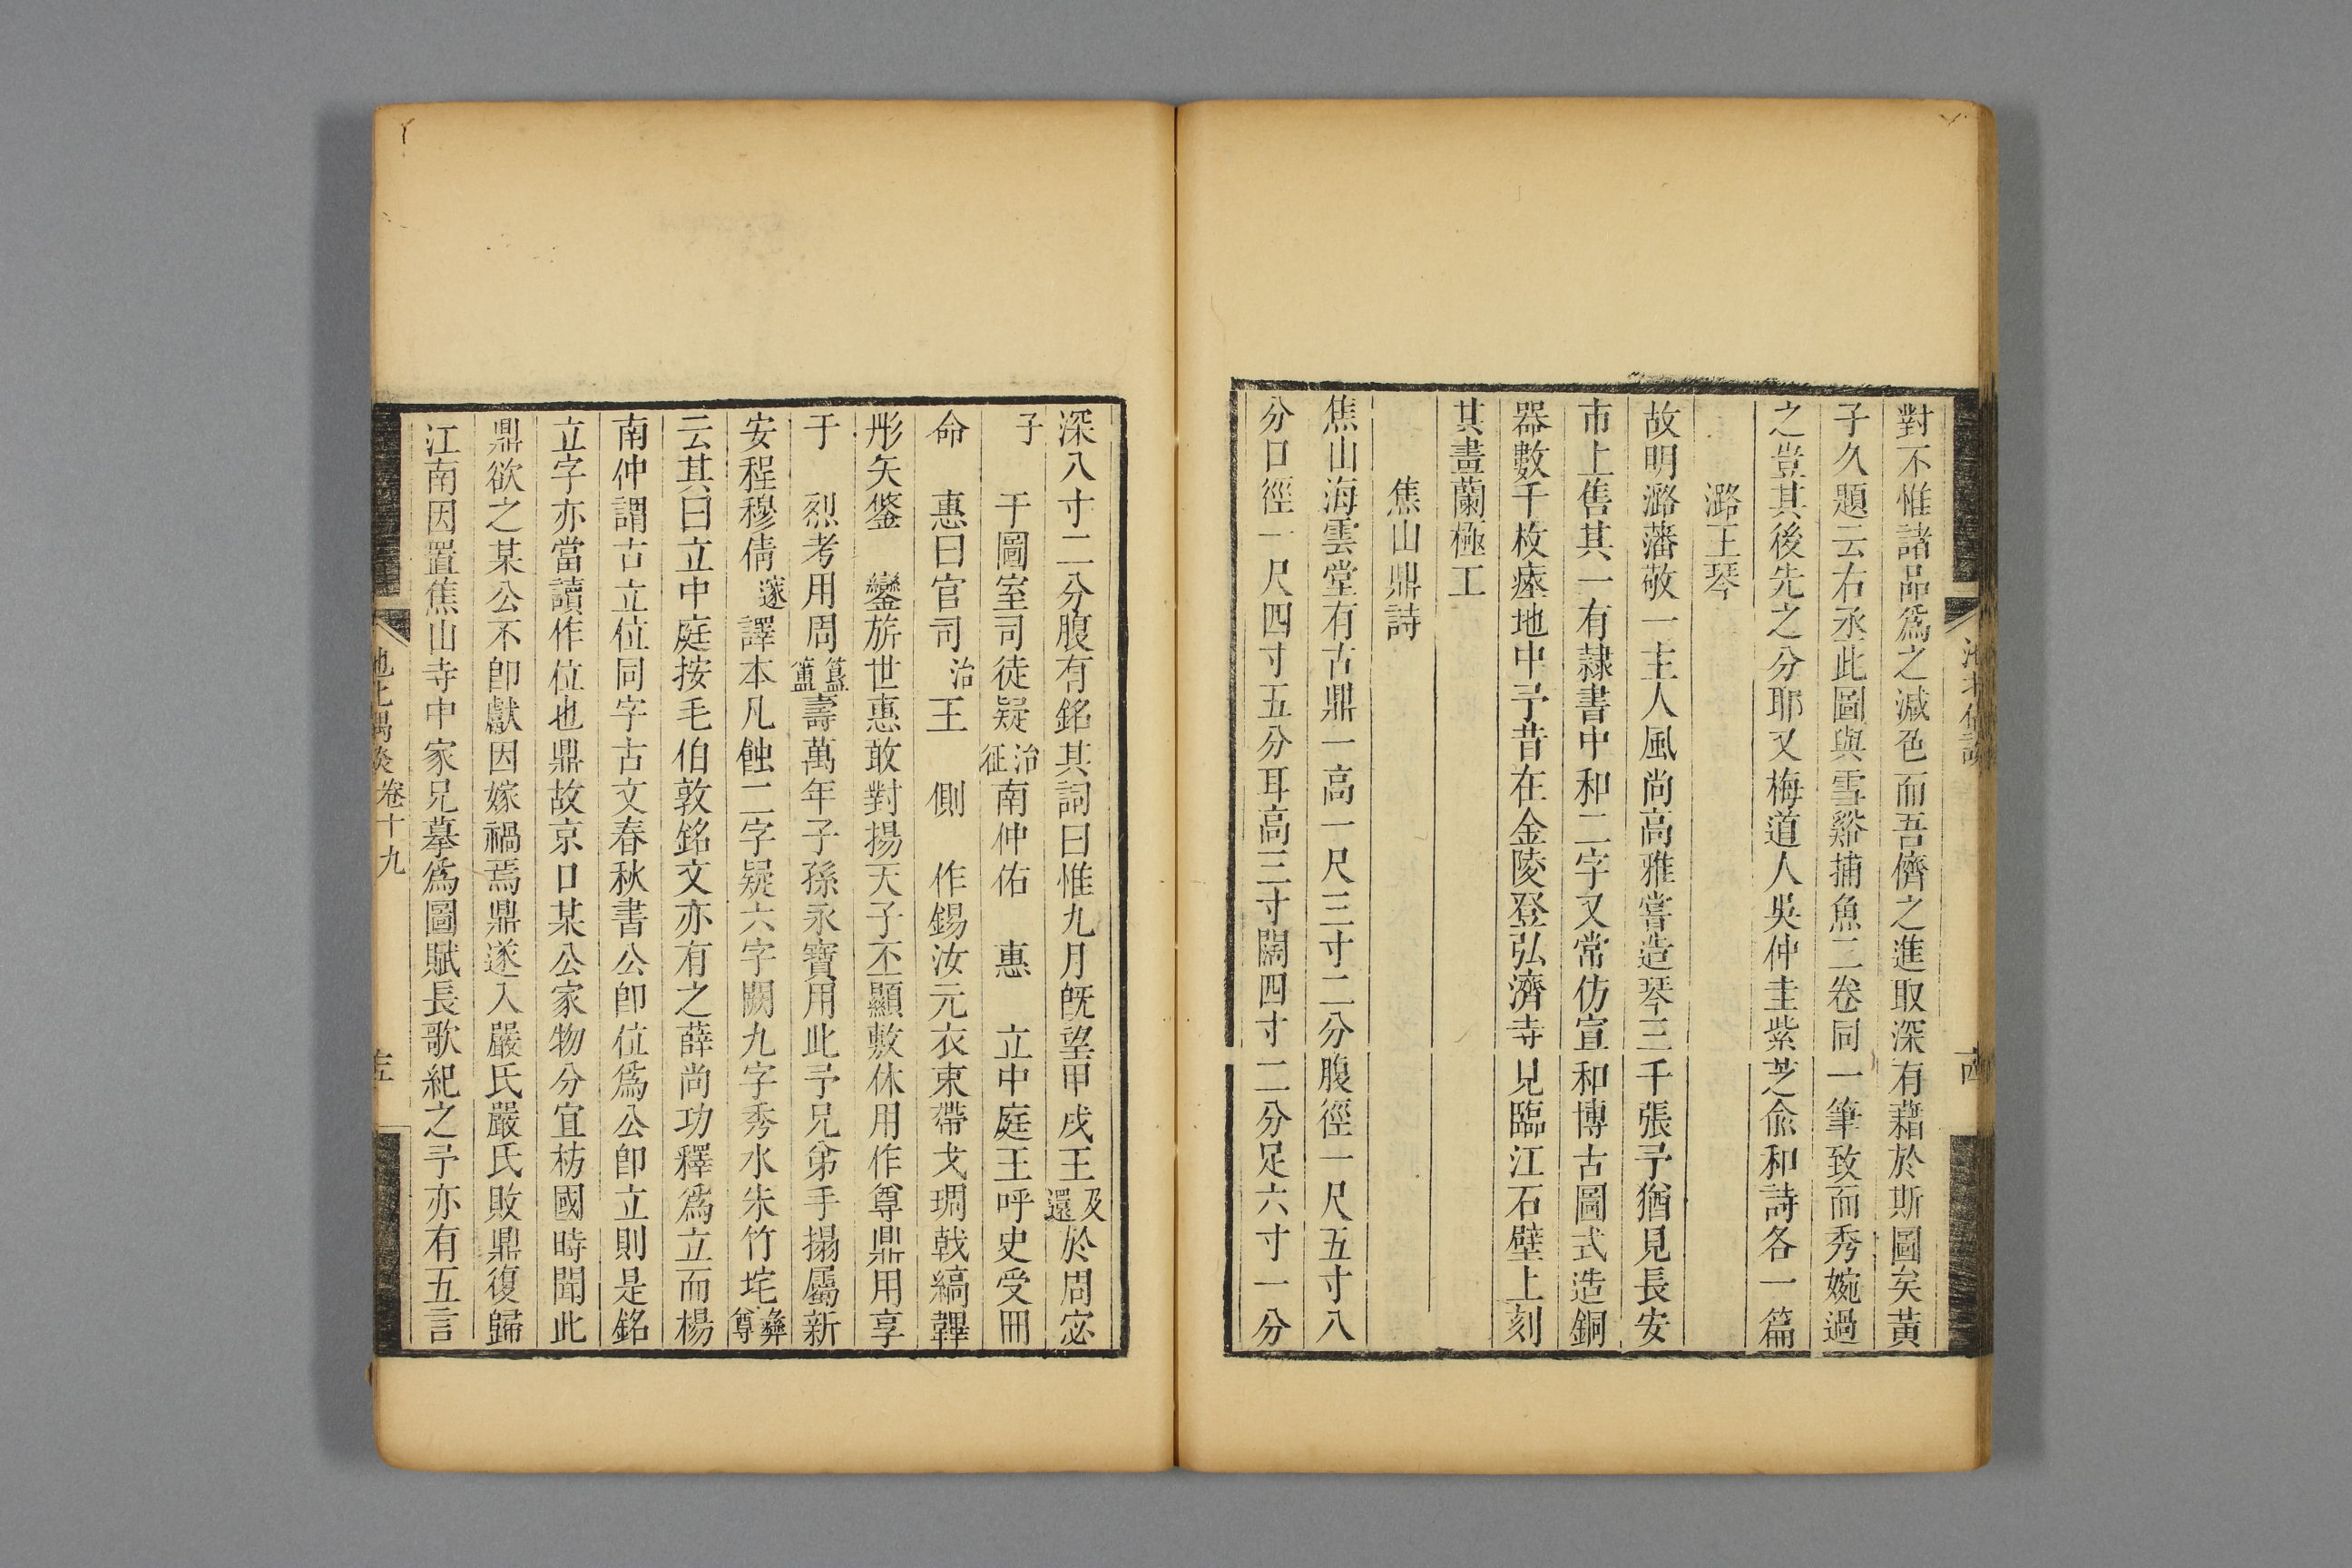 對不惟諸品爲之減色而吾儕之進取深有藉於斯圖矣黃
子久題云右丞此圖與雪谿捕魚二卷同一筆致而秀婉過
之豈其後先之分耶又梅道人吳仲圭紫芝俞和詩各一篇
潞王琴
故明潞藩敬一主人風尚高雅嘗造琴三千張予猶見長安
市上售其一有隷書中和二字又常仿宣和博古圖式造銅
器數千枚瘞地中予昔在金陵登弘濟寺見臨江石壁上刻
其畫蘭極工
焦山鼎詩
焦山海雲堂有古鼎一高一尺三寸二分腹徑一尺五寸八
分口徑一尺四寸五分耳高三寸闊四寸二分足六寸一分
深八寸二分腹有銘其詞曰惟九月旣望甲戌王及還於周宓
子　于圖室司徒疑治征南仲佑　惠　立中庭王呼史受冊
命　惠曰官司治王　側　作錫汝元衣束帶戈琱戟縞韠
彤矢鋚　鑾旂世惠敢對揚天子丕顯敷休用作尊鼎用享
于　烈考用周簋簠壽萬年子孫永寶用此予兄弟手搨屬新
安程穆倩邃譯本凡蝕二字疑六字闕九字秀水朱竹垞彝尊
云其曰立中庭按毛伯敦銘文亦有之薛尚功釋爲立而楊
南仲謂古立位同字古文春秋書公卽位爲公卽立則是銘
立字亦當讀作位也鼎故京口某公家物分宜枋國時聞此
鼎欲之某公不卽獻因嫁禍焉鼎遂入嚴氏嚴氏敗鼎復歸
江南因置焦山寺中家兄摹爲圖賦長歌紀之予亦有五言
卷十九